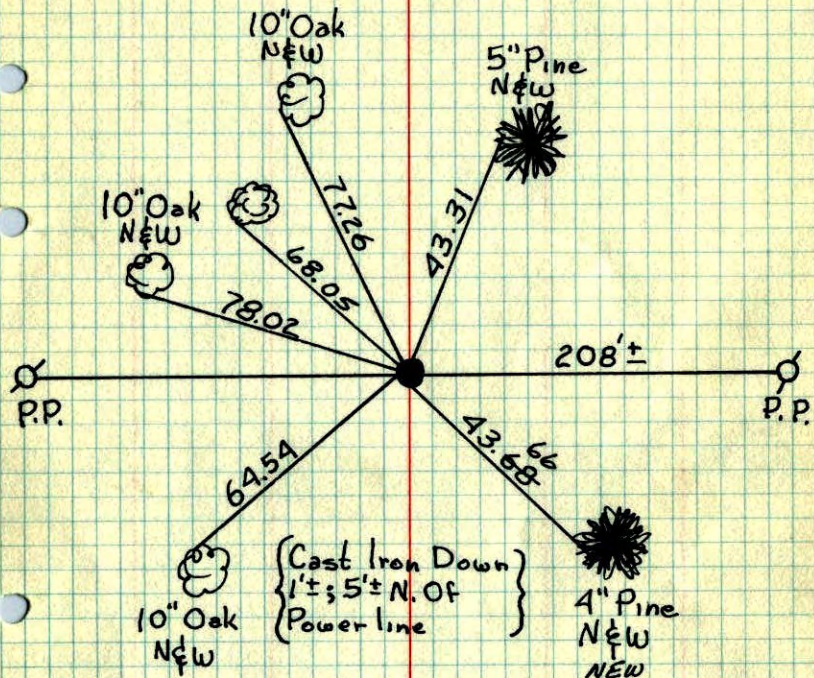 10" Oak
N&W
5" Pine
N&W
10" Oak
N&W
77.26
43.31
68.05
78.02
208'±
P.P.
P.P.
64.54
43.68 66
10" Oak
N&W
{Cast Iron Down}
{1'±; 5'± N. Of}
{Power line}
4" Pine
N&W
NEW